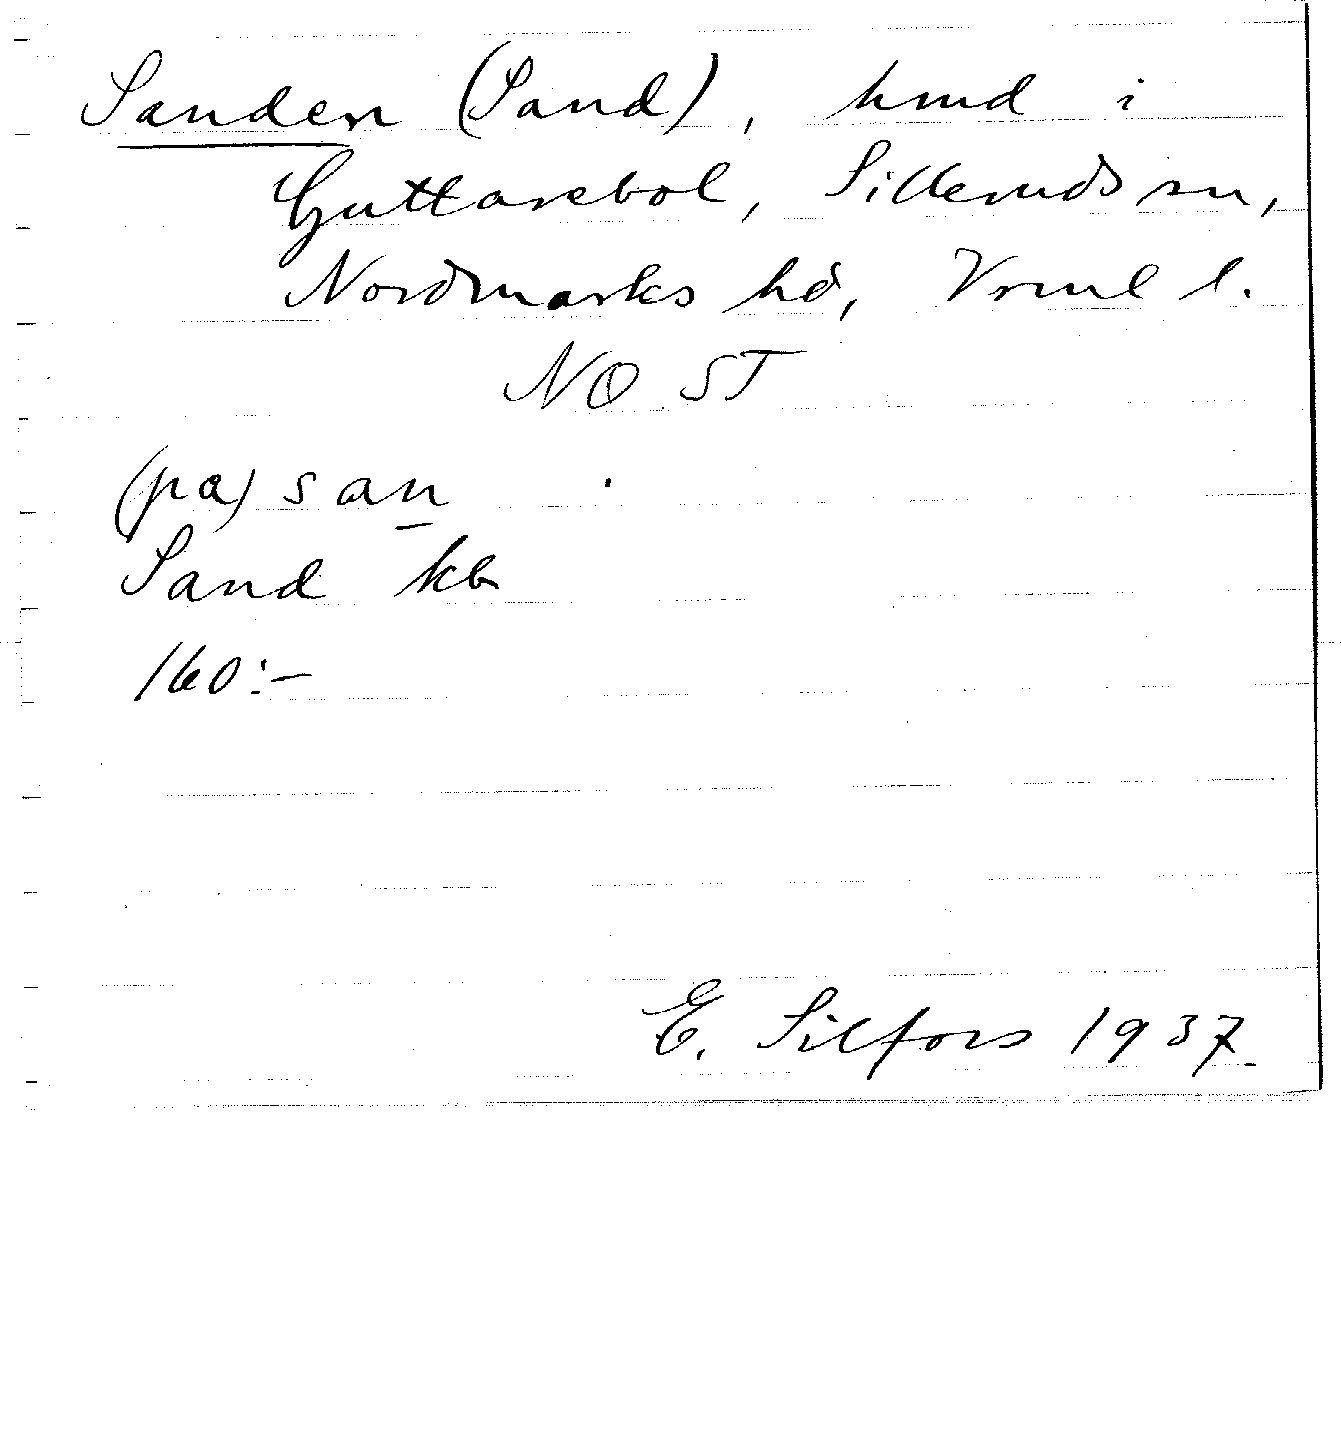 Sanden (Sand), hmd i
Guttarebol, Silleruds sn,
Nordmarks hd, Vrml l.
NO ST
(pa) san
Sand kb
160:-
E. Silfors 1937.